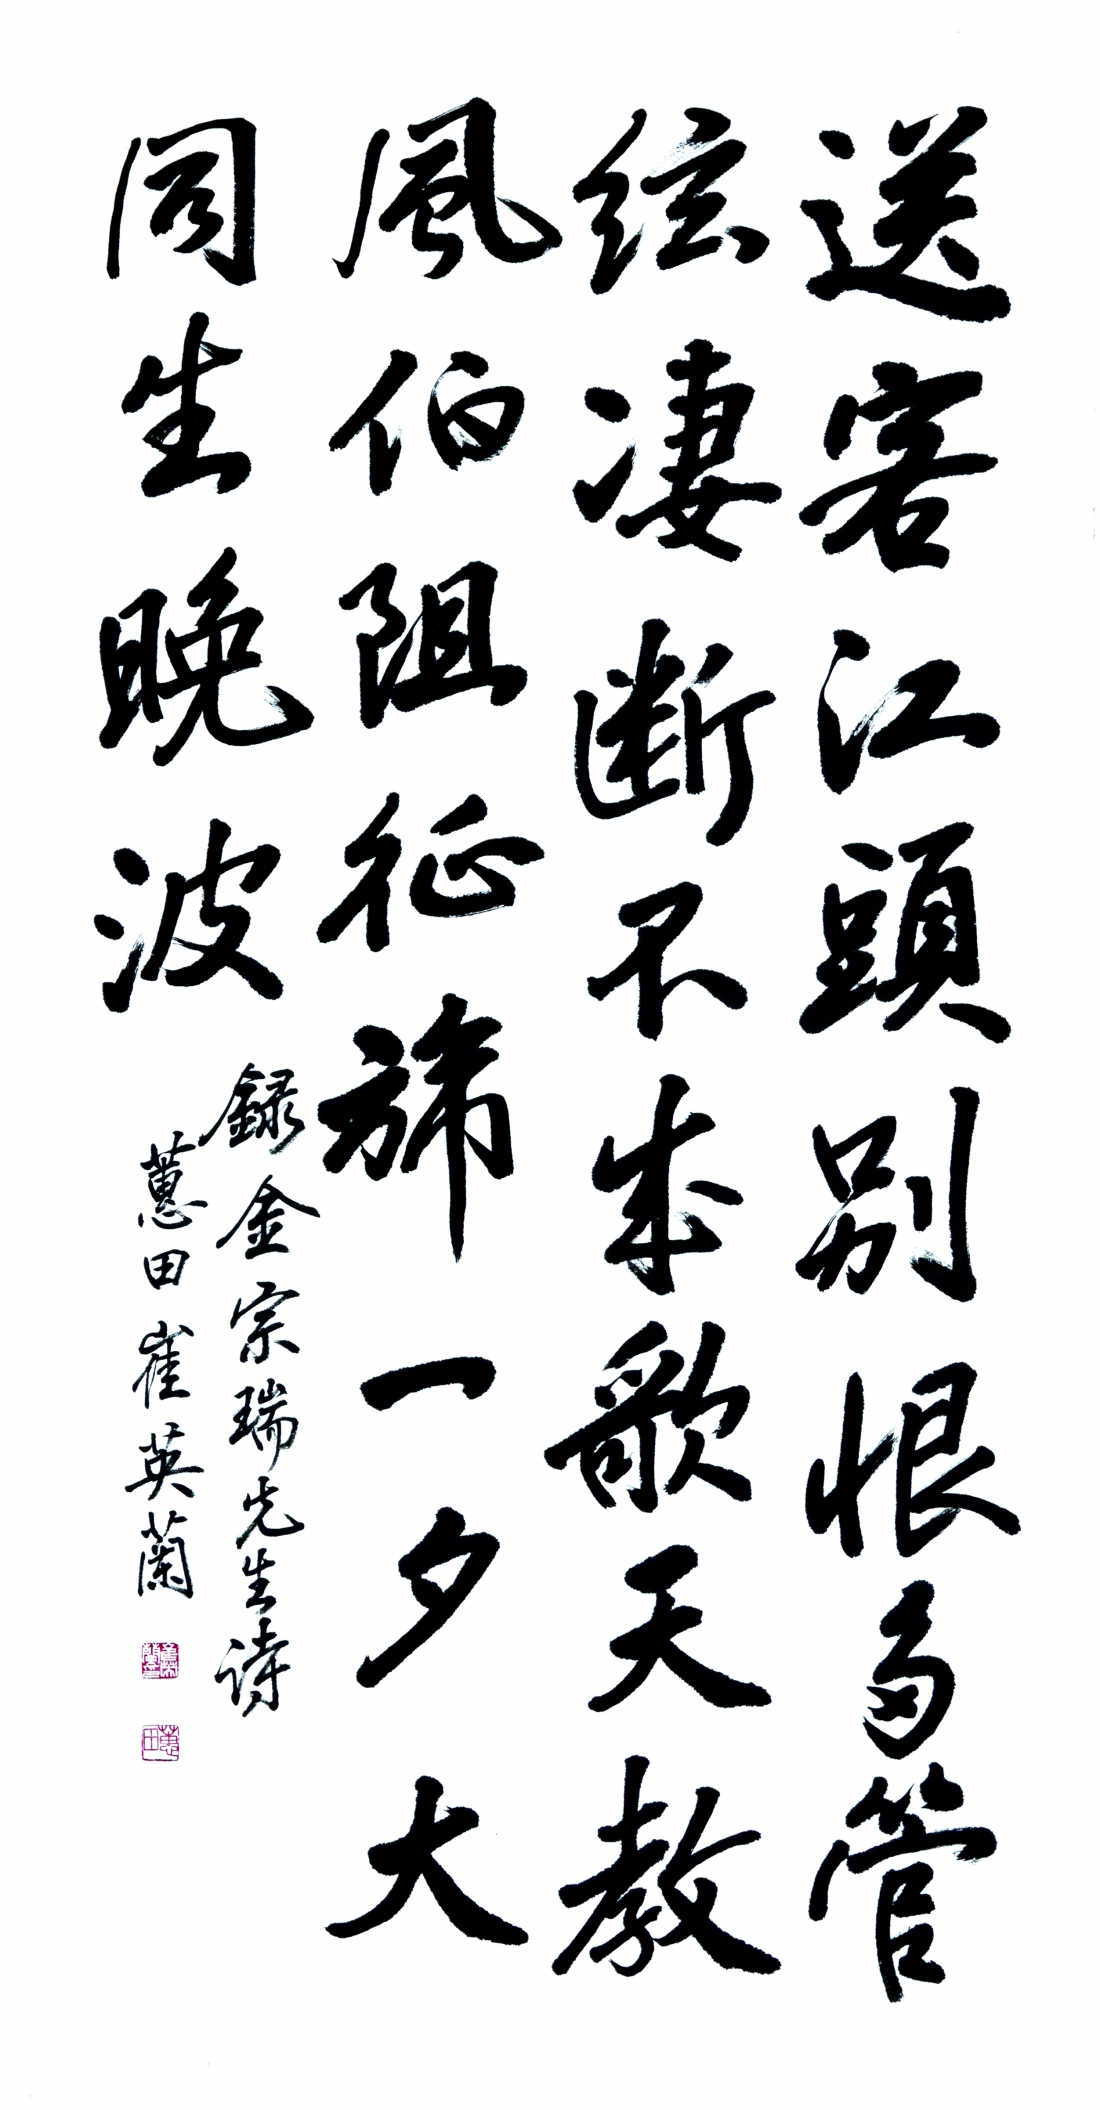 送客江頭別恨多管
絃凄断不成歌天教
風伯阻征旆一夕大
同生晚波
録金宗瑞先生诗
蕙田崔英蘭
蕙田